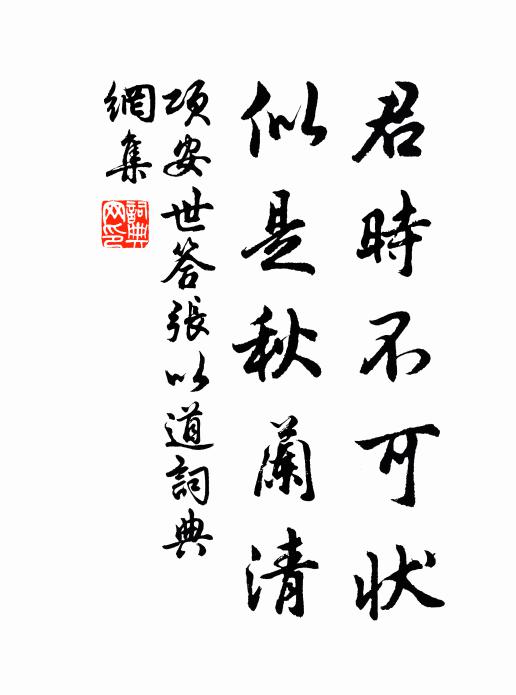 君時不可状
似是秋蘭清
項安世答張以道詞典
網集
詞典
网印